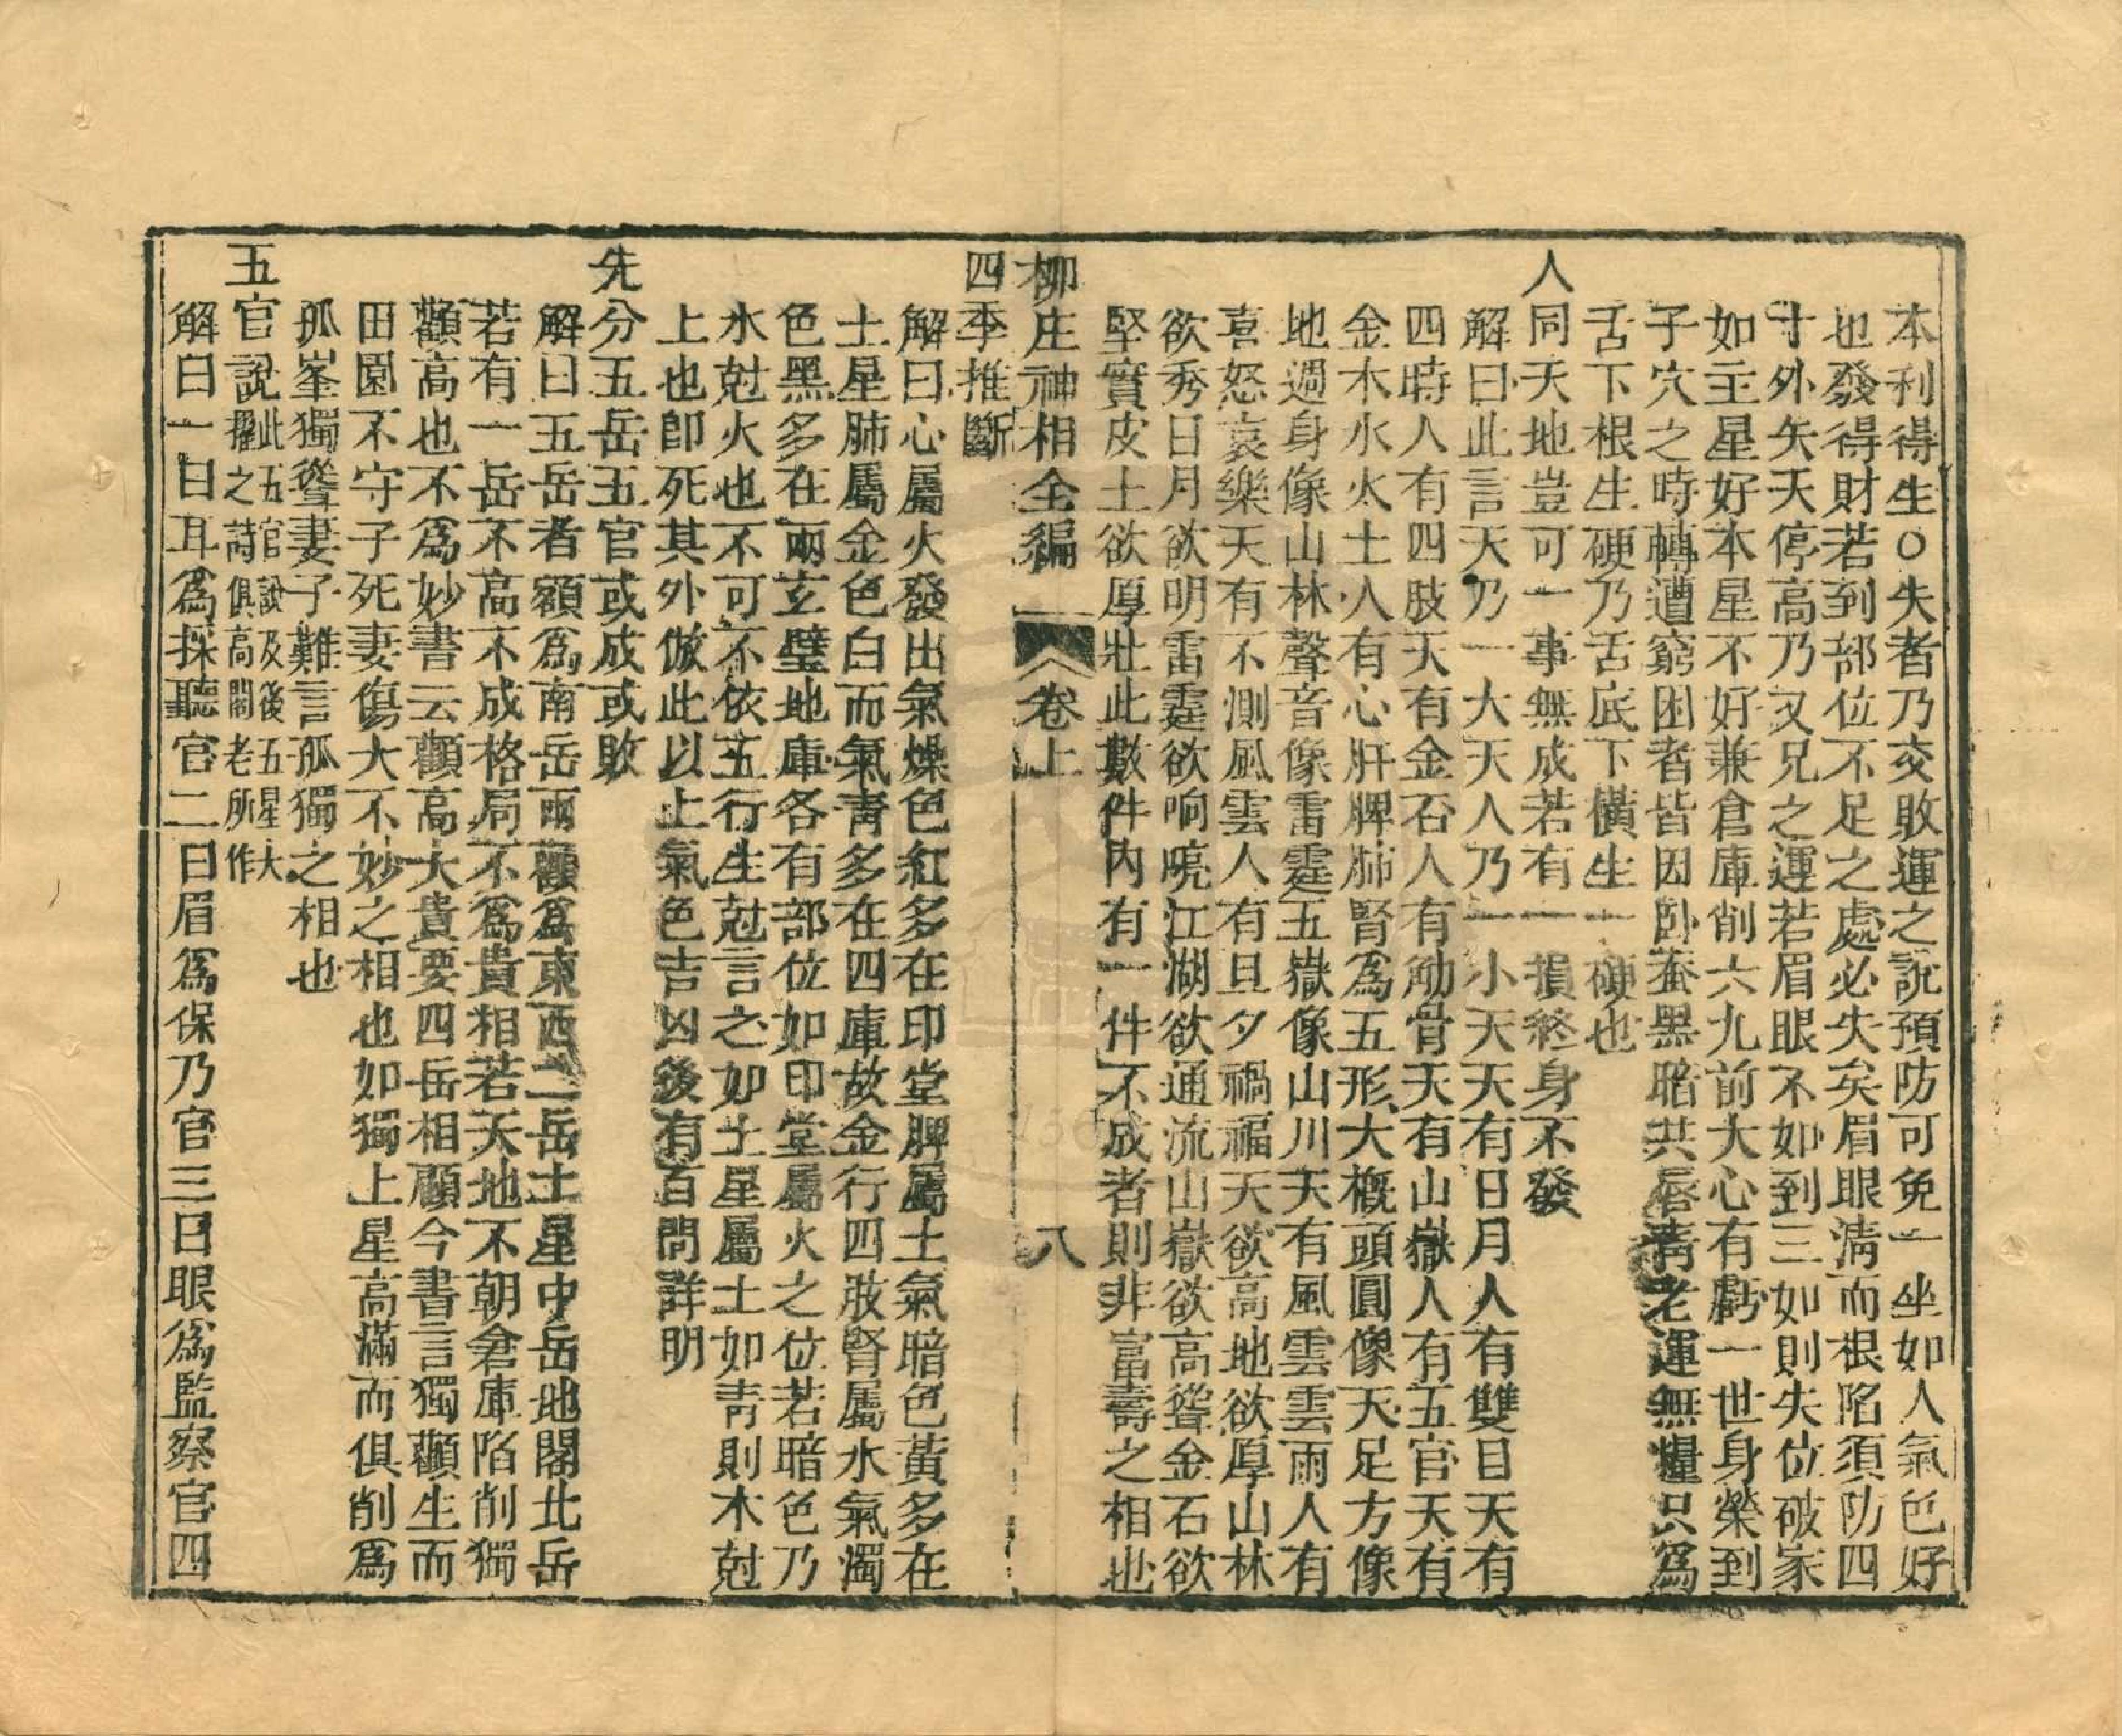 本利得生○失者乃交敗運之說預防可免一坐如人氣色好
也發得財若到部位不足之處必失矣眉眼淸而根陷須防四
寸外矢天停高乃父兄之運若眉眼不如到三如則失位破家
如主星好本星不好兼倉庫削六九前大心有虧一世身榮到
子穴之時轉遭窮困者皆因卧蚕黑暗共唇靑老運無糧只爲
舌下根生硬乃舌底下橫生一硬也
人同天地豈可一事無成若有一損終身不發
解曰此言天乃一大天人乃一小天天有日月人有雙目天有
四時人有四肢天有金石人有觔骨天有山嶽人有五官天有
金木水火土人有心肝脾肺腎爲五形大槪頭圓像天足方像
地週身像山林聲音像雷霆五嶽像山川天有風雲雲雨人有
喜怒哀樂天有不測風雲人有旦夕禍福天欲高地欲厚山林
欲秀日月欲明雷霆欲响喨江湖欲通流山嶽欲高聳金石欲
堅實皮土欲厚壯此數件內有一件不成者則非富壽之相也
柳庄神相全編 卷上 八
四季推斷
解曰心屬火發出氣燥色紅多在印堂脾屬土氣暗色黃多在
土星肺屬金色白而氣靑多在四庫故金行四肢腎屬水氣濁
色黑多在兩玄璧地庫各有部位如印堂屬火之位若暗色乃
水尅火也不可不依五行生尅言之如土星屬土如靑則木尅
上也卽死其外倣此以上氣色吉凶後有百問詳明
先分五岳五官或成或敗
解曰五岳者額爲南岳兩顴爲東西二岳土星中岳地閣北岳
若有一岳不高不成格局不爲貴相若天地不朝倉庫陷削獨
顴高也不爲妙書云顴高大貴要四岳相顧今書言獨顴生而
田園不守子死妻傷大不妙之相也如獨上星高滿而俱削爲
孤峯獨聳妻子難言孤獨之相也
五官說此五官說及後五星大櫂之詩俱高閣老所作
解曰一曰耳爲採聽官二曰眉爲保乃官三曰眼爲監察官四